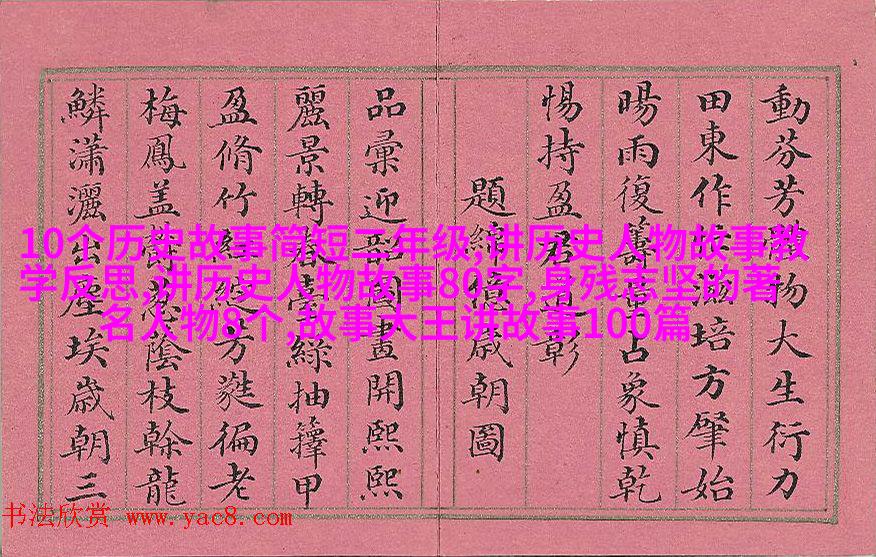 動芬芳物大生衍力
田東作滋培方肇始
暘雨復籌占象慎乾
惕持盈君道彰
題綿億歲朝圖
品彙迎韶圖畫開熙熙
麗景轉春臺綠抽籜甲
盈脩竹紅綻芳蕤徧老
梅鳳蓋鬱葱蔭枝幹龍
鱗瀟灑出塵埃歲朝三
10个历史故事简短二年级,讲历史人物故事教
学反思,讲历史人物故事80字,身残志坚的著
名人物8个,故事大王讲故事100篇
书法欣赏 www.yac8.com